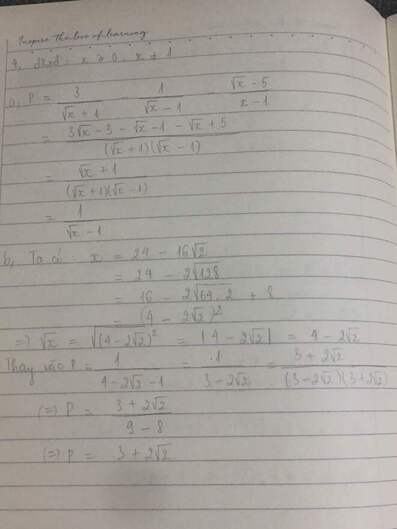 Inspire the love of learning
4, đkxđ: x ≥ 0, x ≠ 1
a, P = 3/(√x + 1) - 1/(√x - 1) - (√x - 5)/(x - 1)
= (3√x - 3 - √x - 1 - √x + 5)/((√x + 1)(√x - 1))
= (√x + 1)/((√x + 1)(√x - 1))
= 1/(√x - 1)
b, Ta có: x = 24 - 16√2
= 24 - 2√128
= 16 - 2√64.2 + 8
= (4 - 2√2)²
=> √x = √(4 - 2√2)² = |4 - 2√2| = 4 - 2√2
Thay vào P = 1/(4 - 2√2 - 1) = 1/(3 - 2√2) = (3 + 2√2)/((3 - 2√2)(3 + 2√2))
(=) P = (3 + 2√2)/(9 - 8)
(=) P = 3 + 2√2